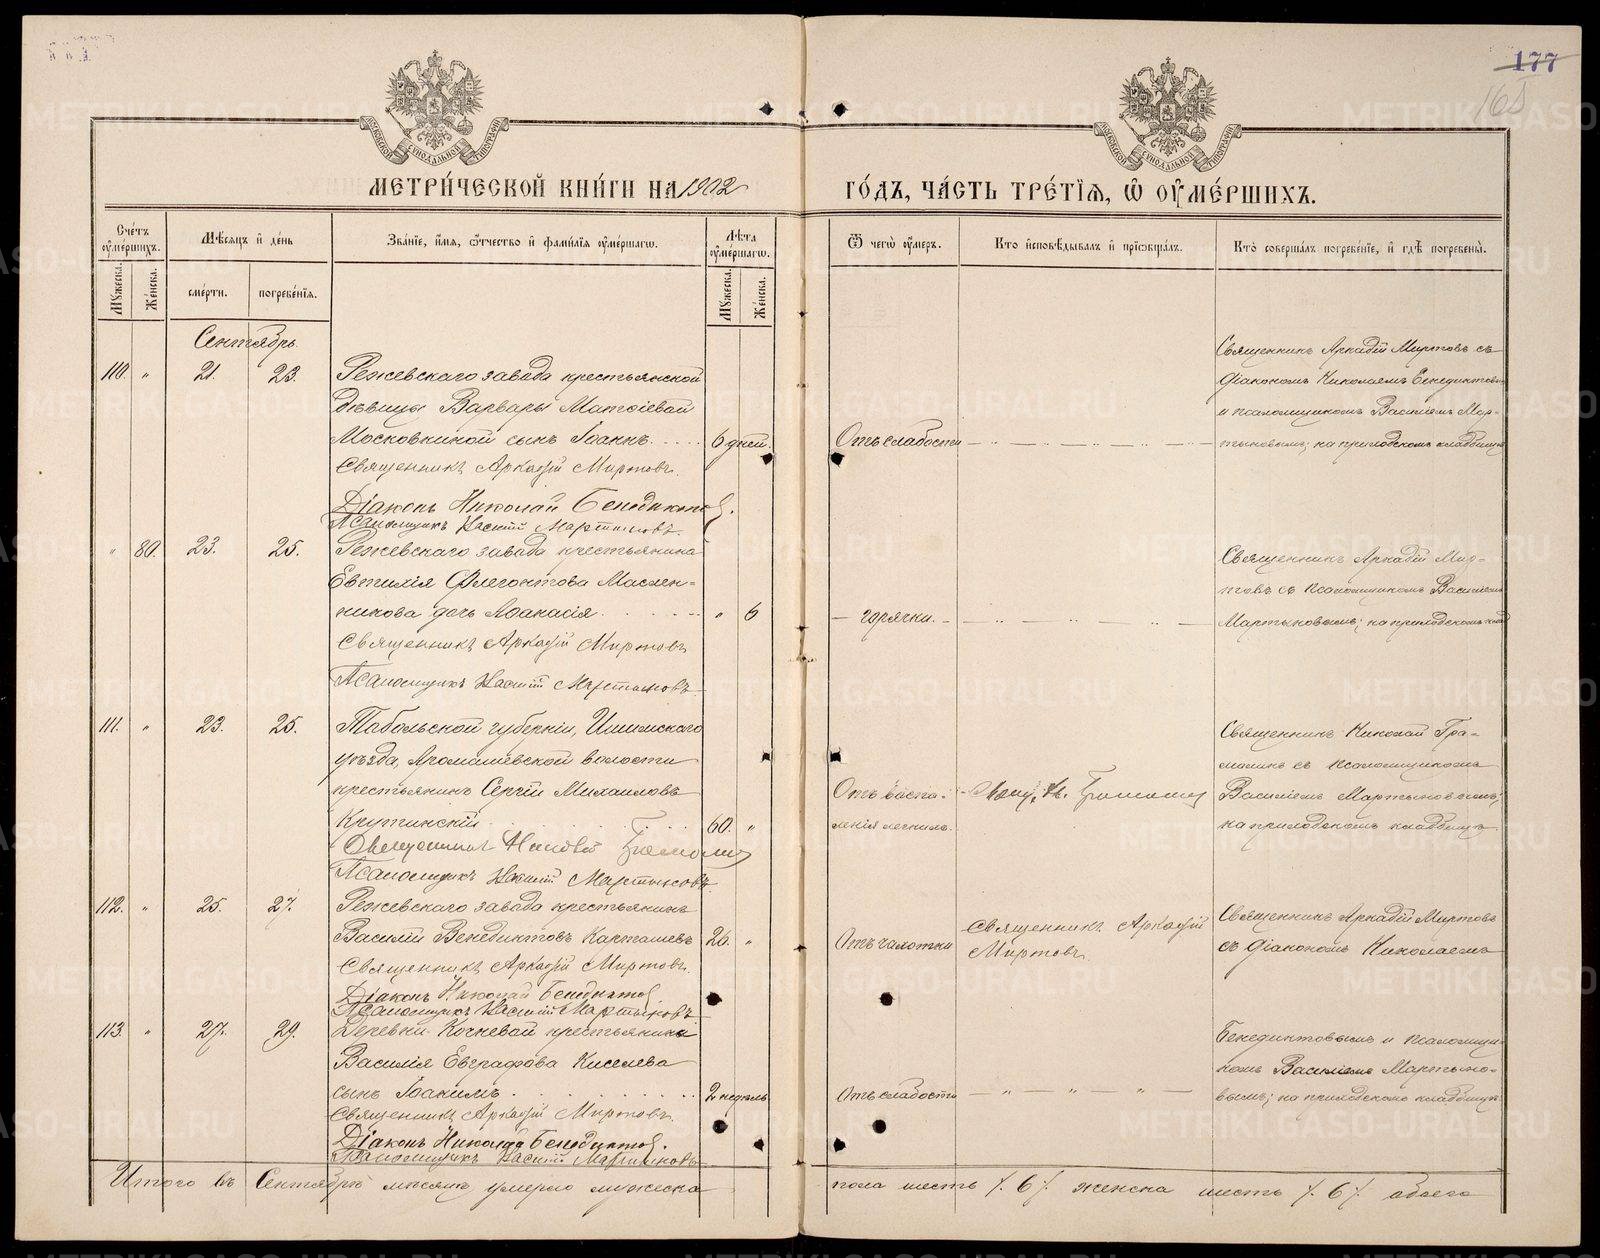 177
МОСКОВСКОЙ СУНОДАЛЬНОЙ ТИПОГРАФІИ
МОСКОВСКОЙ СУНОДАЛЬНОЙ ТИПОГРАФІИ
МЕТРИ́ЧЕСКОЙ КНИ́ГИ НА 1902 ГО́ДЪ, ЧА́СТЬ ТРЕ́ТІѦ, Ѡ ОУМЕ́РШИХЪ.
Сче́тъ оуме́ршихъ.
Мꙋжеска.
Же́нска.
Мѣ́сяцъ и де́нь
сме́рти.
погребе́нія.
Зва́ніе, и́мя, ѻ́тчество и фами́лія оуме́ршагѡ.
Лѣ́та оуме́ршагѡ.
Мꙋжеска.
Же́нска.
Ѿ чегѡ̀ оу́меръ.
Кто̀ исповѣ́дывалъ и пріѡбща́лъ.
Кто̀ соверша́лъ погребе́ніе, и гдѣ̀ погребены̀.
Сентябрь.
110. " 21. 23. Режевскаго завода крестьянской
дѣвицы Варвары Матѳіевой
Московкиной сынъ Іоаннъ 6 дней. Отъ слабости
Священникъ Аркадій Миртовъ.
Діаконъ Николай Бенедиктовъ.
Псаломщикъ Василій Мартыновъ.
Священникъ Аркадій Миртовъ съ
діакономъ Николаемъ Бенедиктовы
и псаломщикомъ Василіемъ Мар-
тыновымъ; на приходскомъ кладбищѣ
" 80. 23. 25. Режевскаго завода крестьянина
Евтихія Флегонтова Маслен-
никова дочь Аѳанасія " 6 – горячки. –
Священникъ Аркадій Миртовъ
Псаломщикъ Василій Мартыновъ.
Священникъ Аркадій Мир-
товъ съ псаломщикомъ Василіемъ
Мартыновымъ; на приходскомъ клад
111. " 23. 25. Тобольской губерніи, Ишимскаго
уѣзда, Аромашевской волости
крестьянинъ Сергій Михаиловъ
Крутинскій 60. "
Священникъ Николай
Псаломщикъ Василій Мартыновъ.
Отъ воспа-
ленія легкихъ.
Свящ. Н.
Священникъ Николай
съ псаломщикомъ
Василіемъ Мартыновымъ;
на приходскомъ кладбищѣ
112. " 25. 27. Режевскаго завода крестьянинъ
Василій Венедиктовъ Карташевъ 26. " Отъ чахотки
Священникъ Аркадій Миртовъ.
Діаконъ Николай Бенедиктовъ.
Псаломщикъ Василій Мартыновъ
Священникъ Аркадій
Миртовъ.
Священникъ Аркадій Миртовъ
съ діакономъ Николаемъ
113. " 27. 29. Деревни Кочневой крестьянина
Василія Евграфова Киселева
сынъ Іоакимъ 2 недѣль Отъ слабости " " "
Священникъ Аркадій Миртовъ.
Діаконъ Николай Бенедиктовъ.
Псаломщикъ Василій Мартыновъ
Бенедиктовымъ и псаломщи-
комъ Василіемъ Мартыно-
вымъ; на приходскомъ кладбищѣ
Итого въ Сентябрѣ мѣсяцѣ умерло мужеска пола шесть /. 6 /. женска шесть /. 6 /. обоего
METRIKI.GASO-URAL.RU